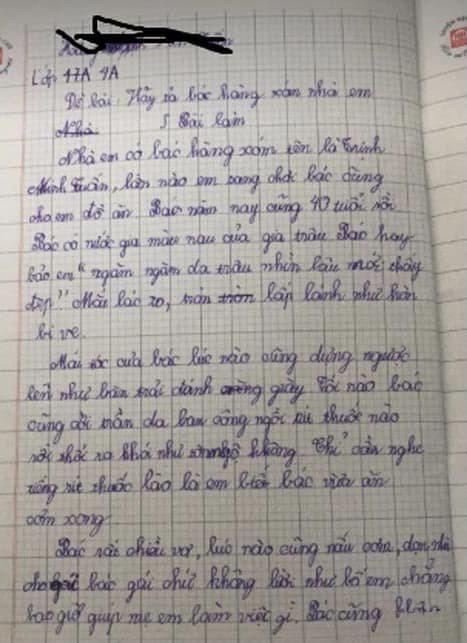 Lớp 17A 4A
Đề bài: Hãy tả bác hàng xóm nhà em
Nhà Bài làm
Nhà em có bác hàng xóm tên là Trịnh
Minh Tuấn, lần nào em sang chơi bác cũng
cho em đồ ăn. Bác năm nay cũng 40 tuổi rồi
Bác có nước gia màu nau của gia trâu Bác hay
bảo em "ngăm ngăm da trâu nhìn lâu mới thấy
đẹp" Mắt bác to, tròn lấp lánh như hòn
bi ve.
Mái tóc của bác lúc nào cũng dựng ngược
lên như bàn trải đánh giày Tối nào bác
cũng cởi trần da ban công ngồi rít thuốc nào
rồi thổi ra khói như không. Chỉ cần nghe
tiếng rít thuốc lào là em biết bác vừa ăn
cơm xong
Bác rất chiều vợ, lúc nào cũng nấu cơm, dọn nhà
cho bác gái chứ không lười như bố em chẳng
bao giờ giúp mẹ em làm việc gì. Bác cũng